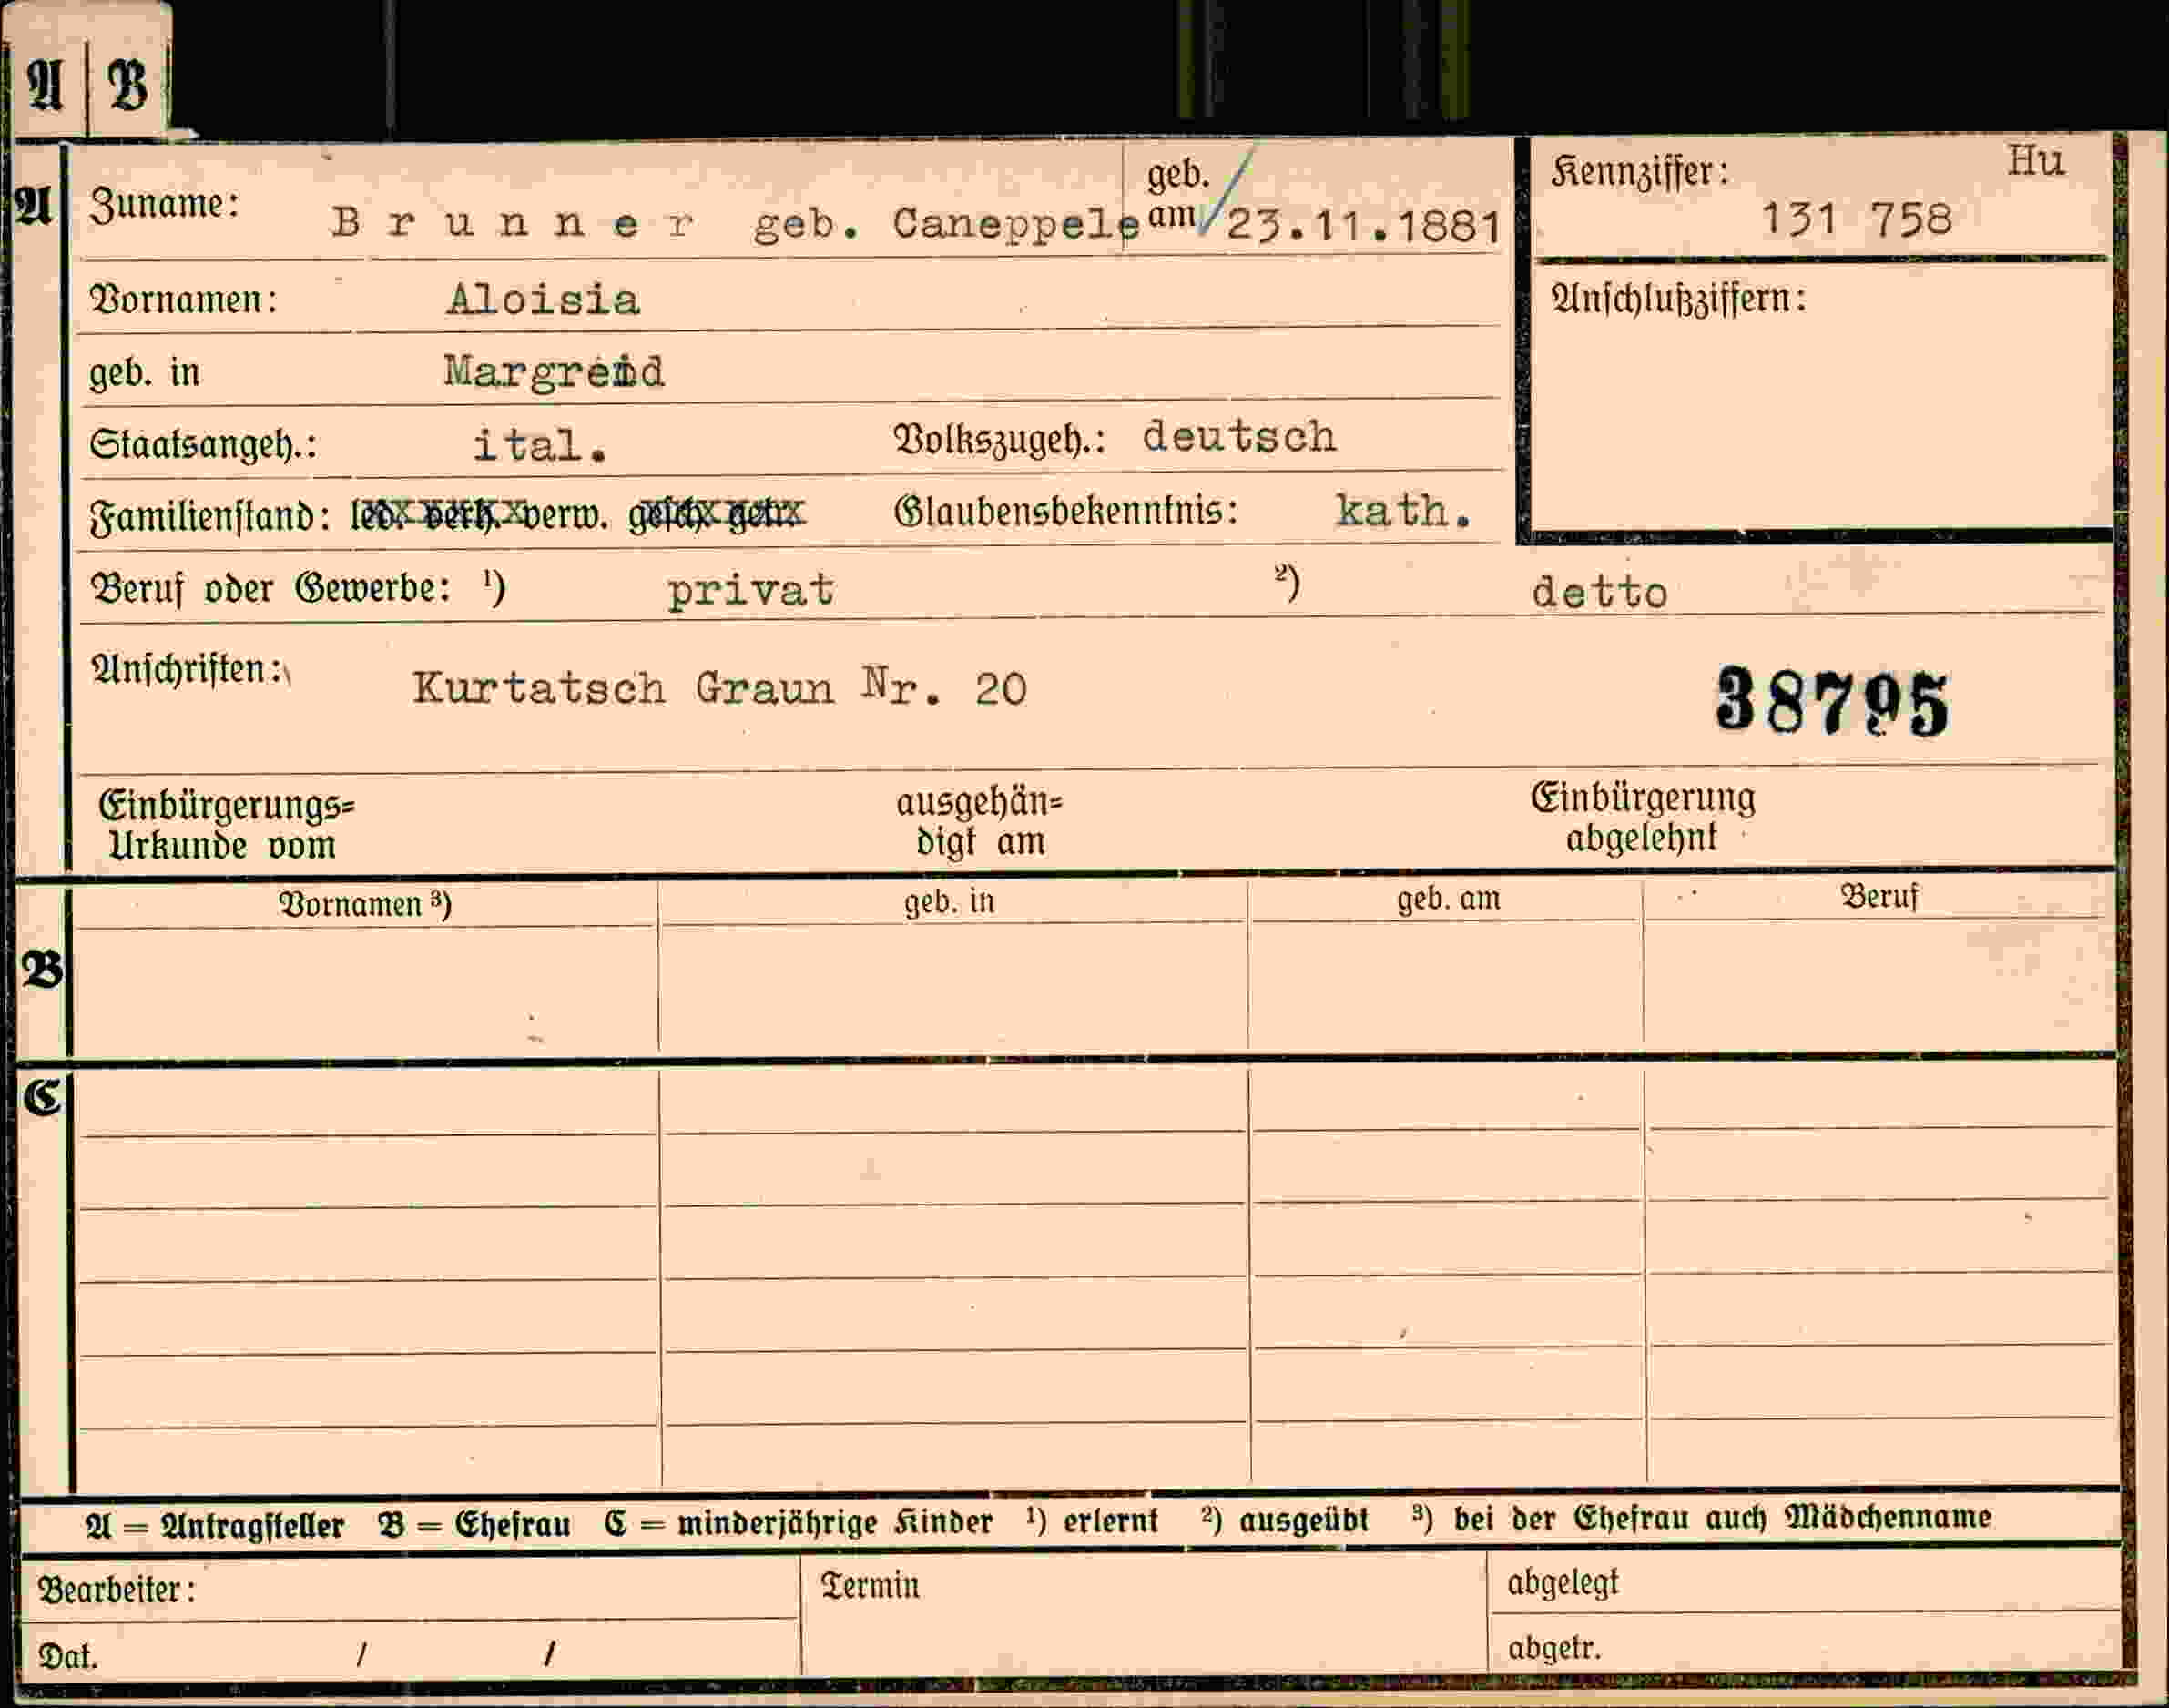 A B
A
Zuname: Brunner geb. Caneppele geb. am 23.11.1881
Kennziffer: Hu
131 758
Vornamen: Aloisia
Anschlußziffern:
geb. in Margreid
Staatsangeh.: ital. Volkszugeh.: deutsch
Familienstand: led. verh. verw. gesch. getr. Glaubensbekenntnis: kath.
Beruf oder Gewerbe: ¹) privat ²) detto
Anschriften: Kurtatsch Graun Nr. 20
38795
Einbürgerungs=
Urkunde vom
ausgehän=
digt am
Einbürgerung
abgelehnt
Vornamen ³) geb. in geb. am Beruf
B
C
A = Antragsteller B = Ehefrau C = minderjährige Kinder ¹) erlernt ²) ausgeübt ³) bei der Ehefrau auch Mädchenname
Bearbeiter: Termin abgelegt
Dat. / / abgetr.